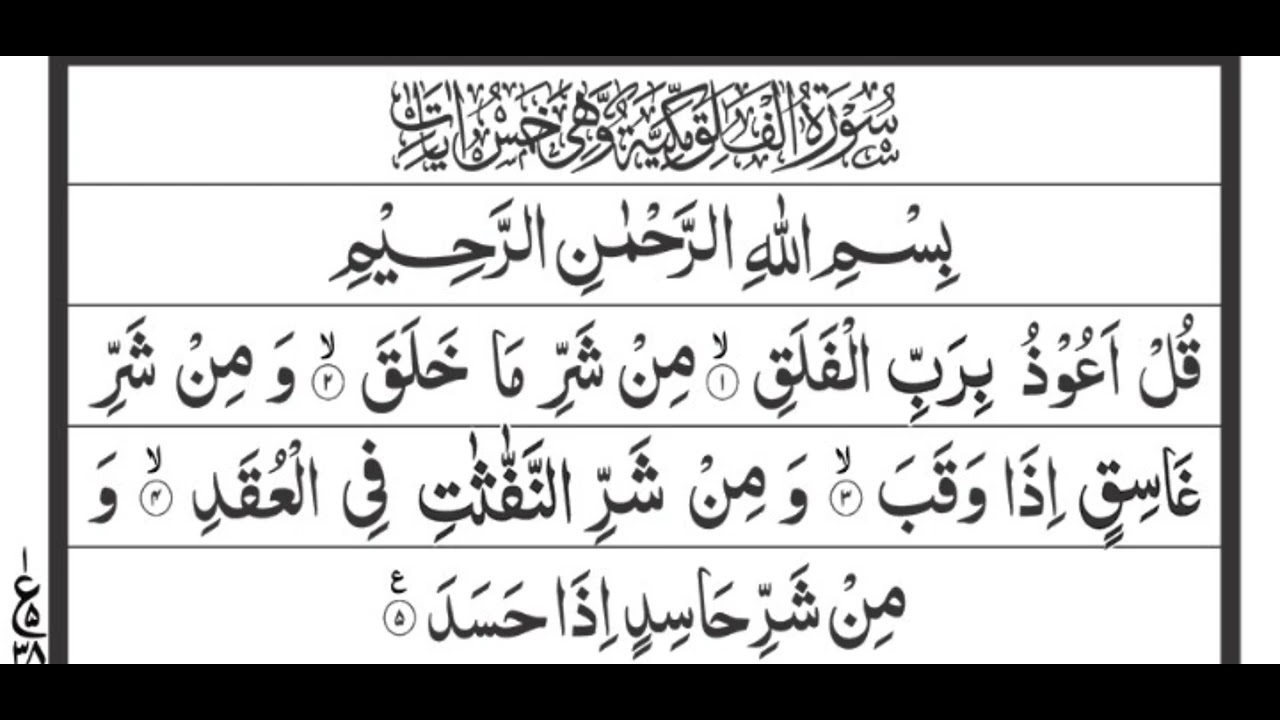 سُوْرَةُ الْفَلَقِ مَكِّيَّةٌ وَّهِيَ خَمْسُ اٰيَاتٍ
بِسْمِ اللّٰهِ الرَّحْمٰنِ الرَّحِيْمِ
قُلْ اَعُوْذُ بِرَبِّ الْفَلَقِ ۙ‏﴿۱﴾ مِنْ شَرِّ مَا خَلَقَ ۙ‏﴿۲﴾ وَ مِنْ شَرِّ
غَاسِقٍ اِذَا وَقَبَ ۙ‏﴿۳﴾ وَ مِنْ شَرِّ النَّفّٰثٰتِ فِی الْعُقَدِ ۙ‏﴿۴﴾ وَ
مِنْ شَرِّ حَاسِدٍ اِذَا حَسَدَ ﴿۵﴾ ع